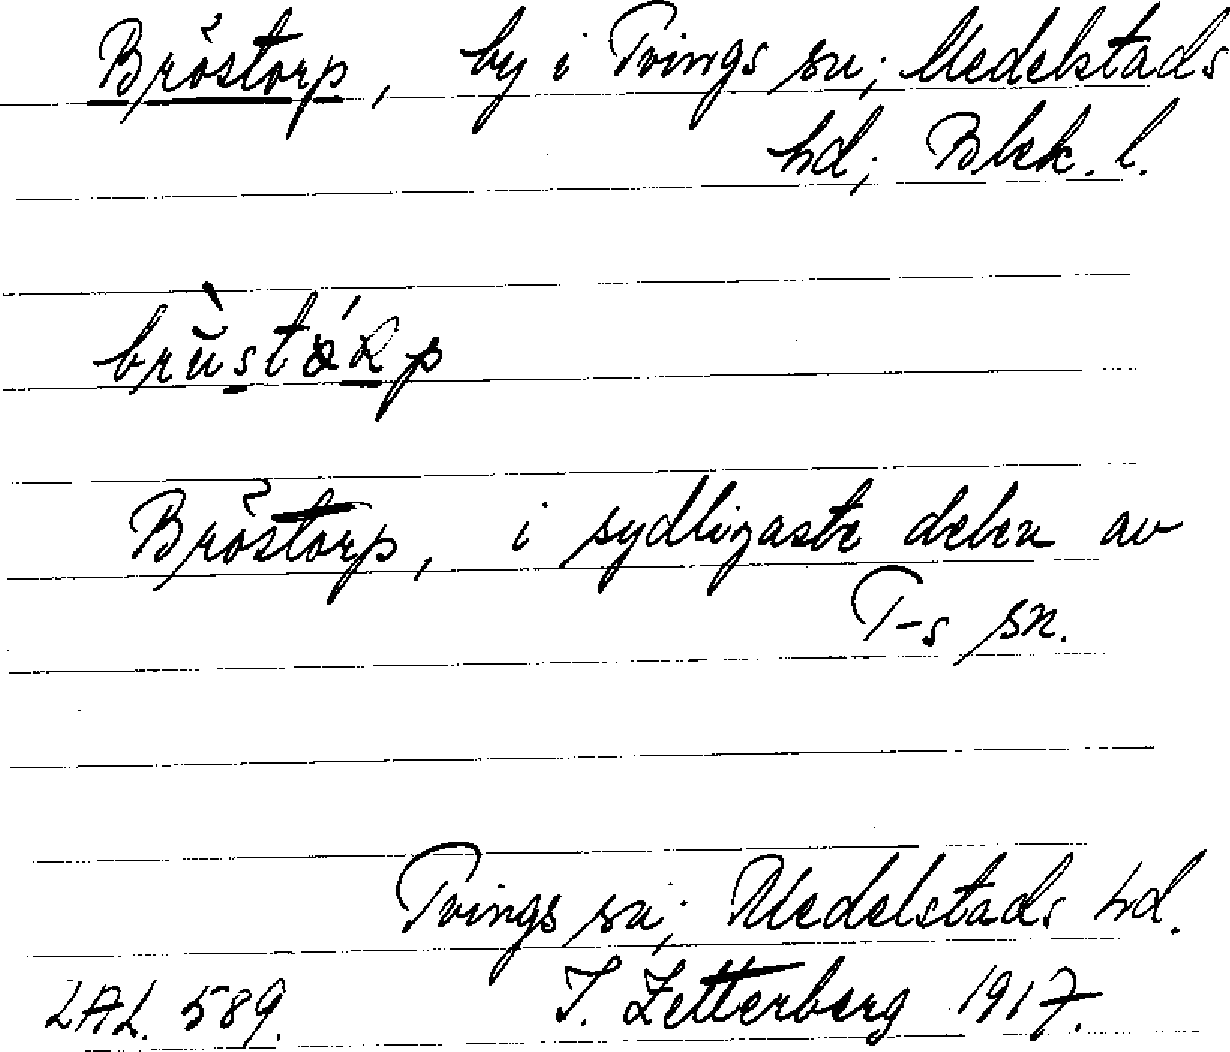 Bröstorp, by i Tvings sn; Medelstads
hd; Blek. l.
Bröstorp, i sydligaste delen av
T-s sn.
Tvings sn; Medelstads hd.
LAL. 589. J. Zetterberg 1917.